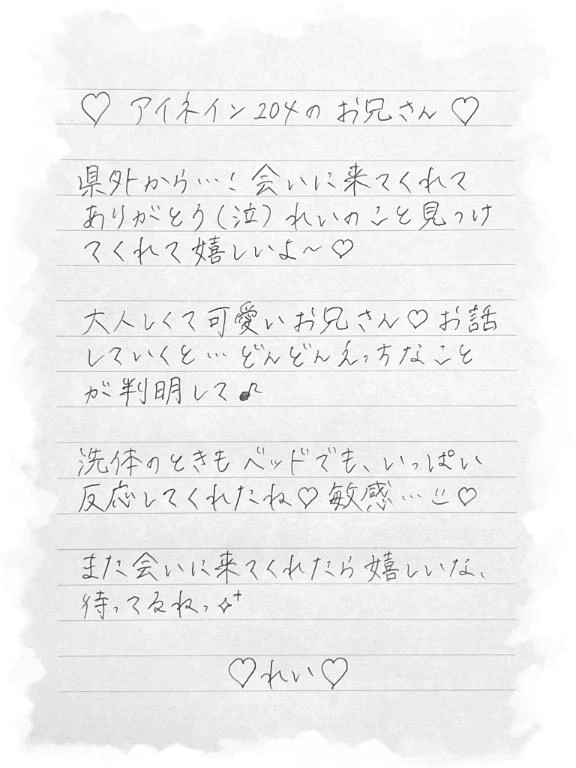 ♡ アイネイン204の お兄さん ♡
県外から…! 会いに来てくれて
ありがとう(泣) れいのこと見つけ
てくれて嬉しいよ〜♡
大人しくて可愛いお兄さん♡お話
していくと… どんどんえっちなこと
が判明して♪
洗体のときもベッドでも、いっぱい
反応してくれたね♡敏感…♡
また会いに来てくれたら嬉しいな、
待ってるねっ✧⁺
♡れい♡